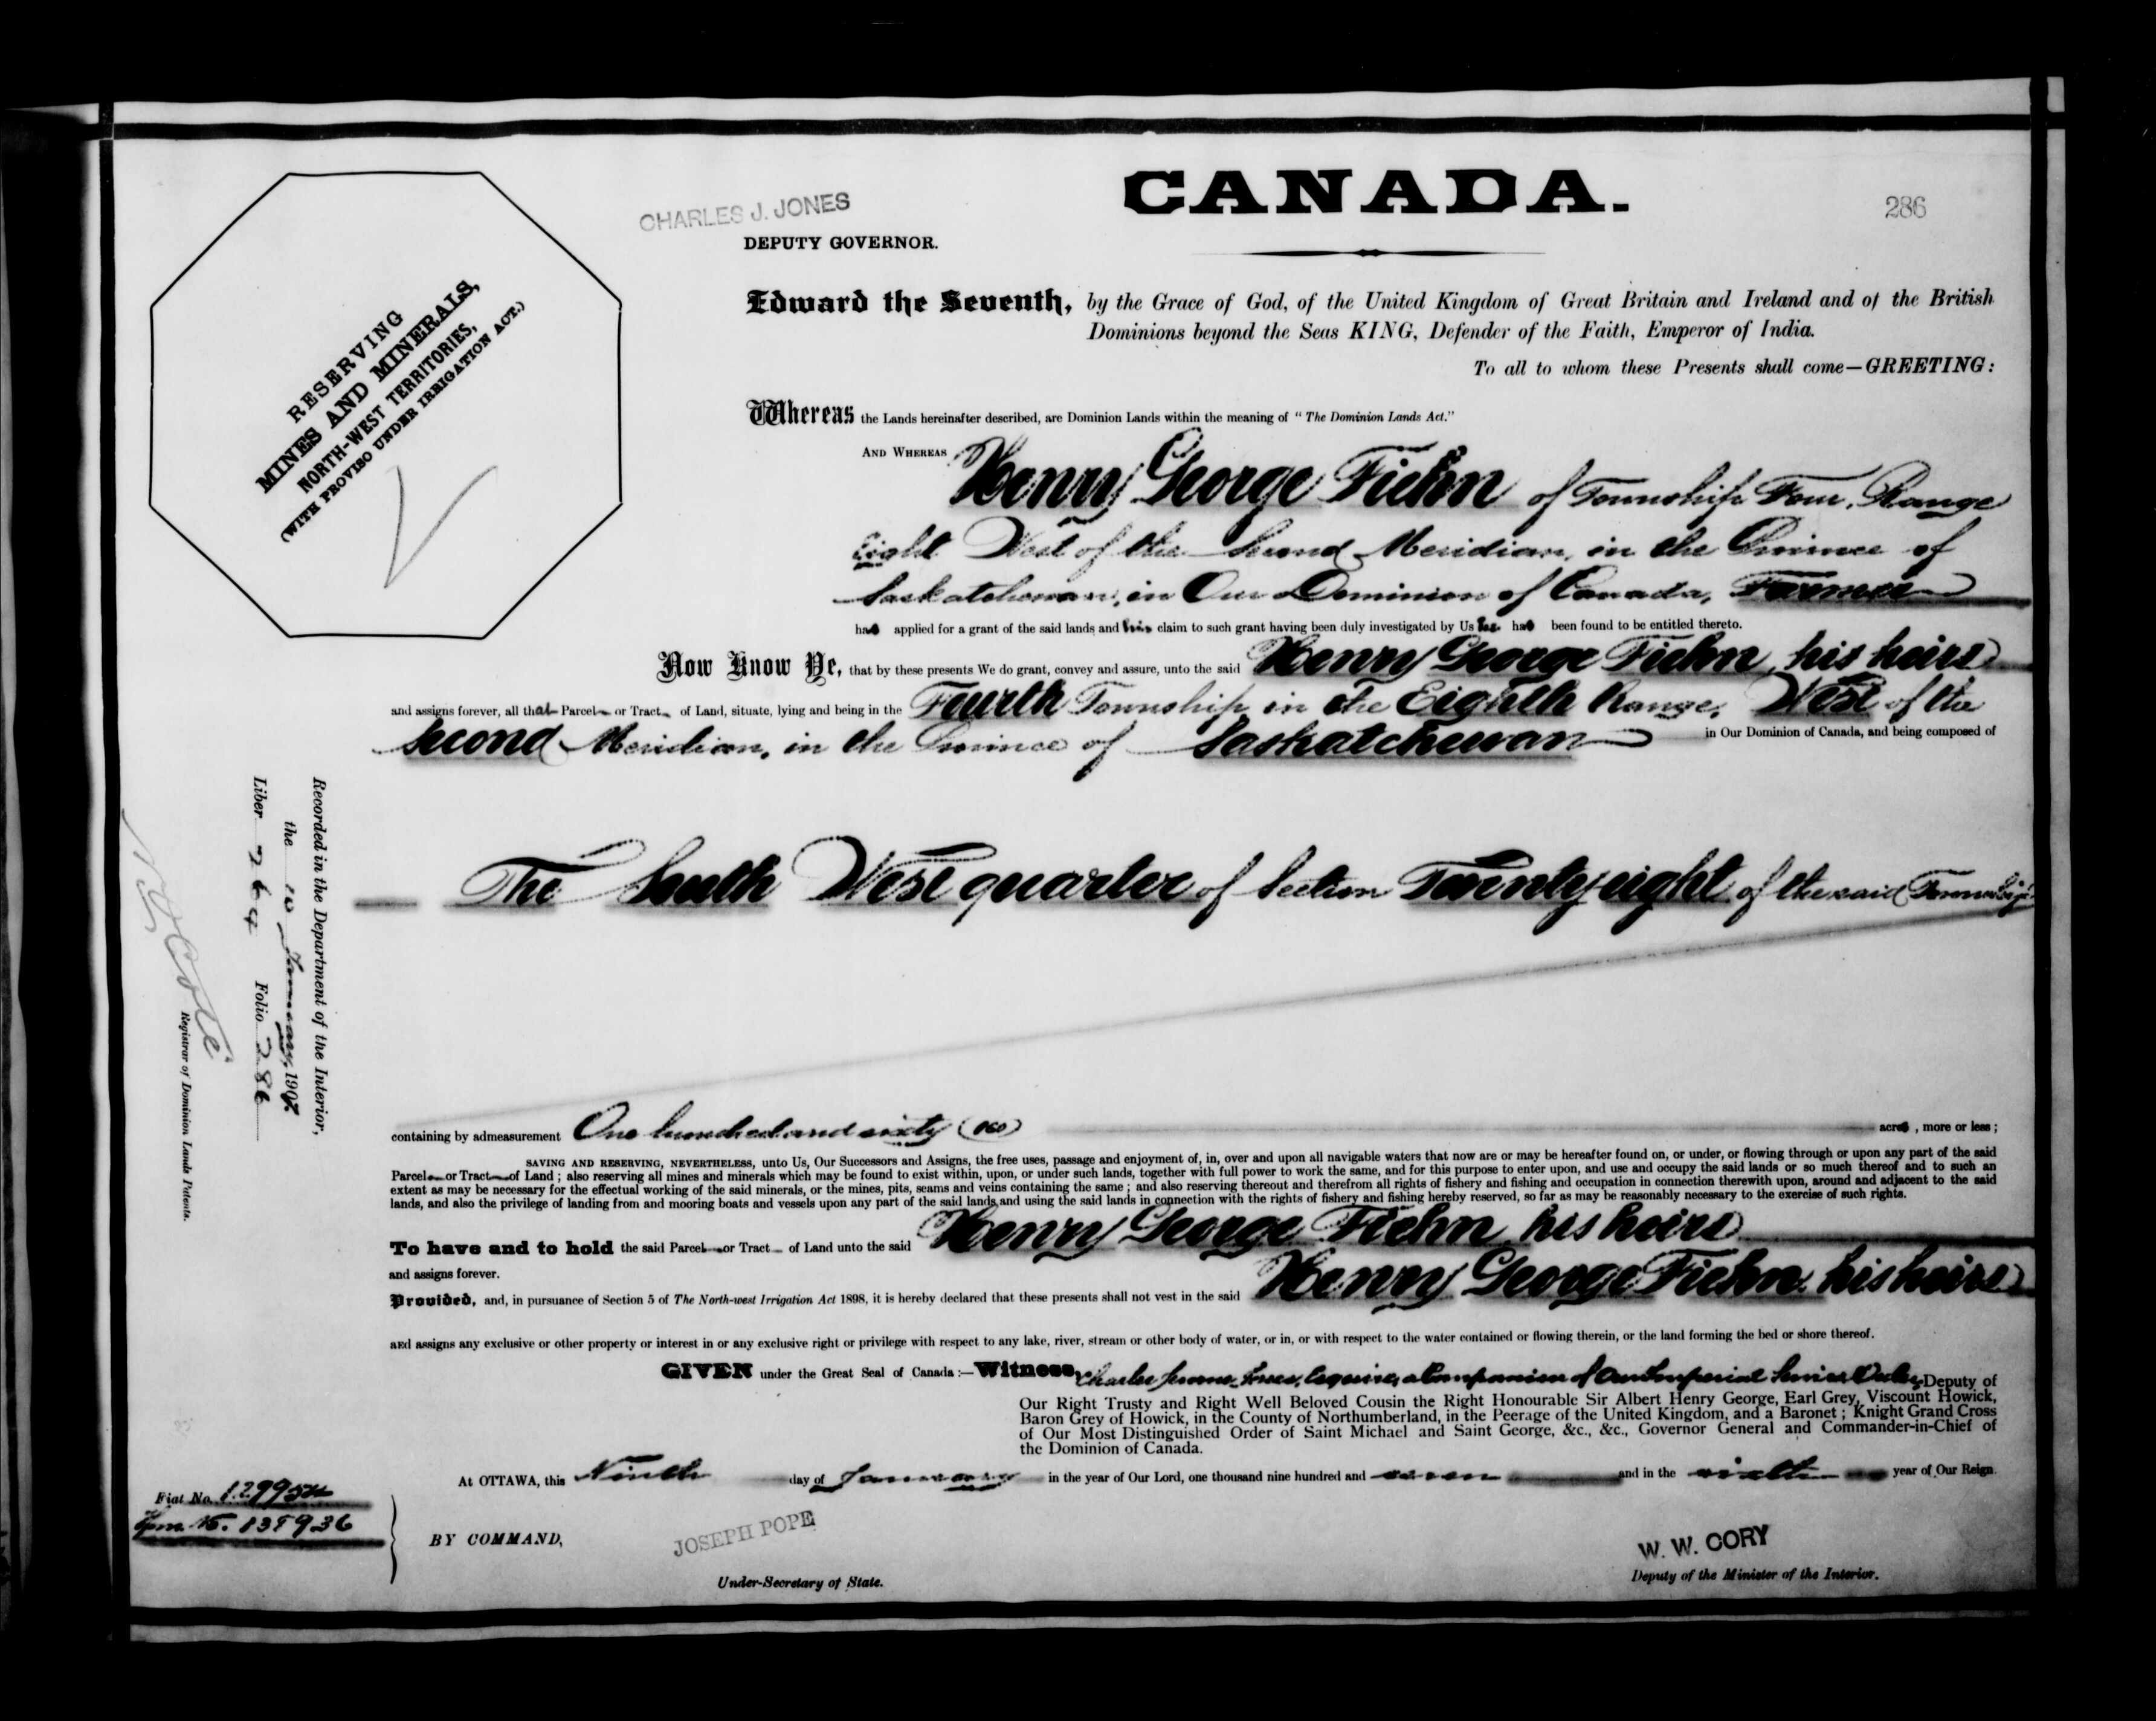 CANADA.
286
CHARLES J. JONES
DEPUTY GOVERNOR.
RESERVING
MINES AND MINERALS,
NORTH-WEST TERRITORIES,
(WITH PROVISO UNDER IRRIGATION ACT.)
Edward the Seventh, by the Grace of God, of the United Kingdom of Great Britain and Ireland and of the British
Dominions beyond the Seas KING, Defender of the Faith, Emperor of India.
To all to whom these Presents shall come—GREETING:
Whereas the Lands hereinafter described, are Dominion Lands within the meaning of "The Dominion Lands Act."
AND WHEREAS Henry George Fiehn of Township Four, Range
Eight West of the Second Meridian, in the Province of
Saskatchewan, in Our Dominion of Canada, Farmer
has applied for a grant of the said lands and his claim to such grant having been duly investigated by Us he has been found to be entitled thereto.
Now Know Ye, that by these presents We do grant, convey and assure, unto the said Henry George Fiehn, his heirs
and assigns forever, all that Parcel or Tract of Land, situate, lying and being in the Fourth Township in the Eighth Range, West of the
Second Meridian, in the Province of Saskatchewan in Our Dominion of Canada, and being composed of
The South West quarter of Section Twenty eight of the said Township
containing by admeasurement One hundred and sixty (160) acres, more or less;
SAVING AND RESERVING, NEVERTHELESS, unto Us, Our Successors and Assigns, the free uses, passage and enjoyment of, in, over and upon all navigable waters that now are or may be hereafter found on, or under, or flowing through or upon any part of the said
Parcel or Tract of Land; also reserving all mines and minerals which may be found to exist within, upon, or under such lands, together with full power to work the same, and for this purpose to enter upon, and use and occupy the said lands or so much thereof and to such an
extent as may be necessary for the effectual working of the said minerals, or the mines, pits, seams and veins containing the same; and also reserving thereout and therefrom all rights of fishery and fishing and occupation in connection therewith upon, around and adjacent to the said
lands, and also the privilege of landing from and mooring boats and vessels upon any part of the said lands and using the said lands in connection with the rights of fishery and fishing hereby reserved, so far as may be reasonably necessary to the exercise of such rights.
To have and to hold the said Parcel or Tract of Land unto the said Henry George Fiehn, his heirs
and assigns forever.
Provided, and, in pursuance of Section 5 of The North-west Irrigation Act 1898, it is hereby declared that these presents shall not vest in the said Henry George Fiehn, his heirs
and assigns any exclusive or other property or interest in or any exclusive right or privilege with respect to any lake, river, stream or other body of water, or in, or with respect to the water contained or flowing therein, or the land forming the bed or shore thereof.
GIVEN under the Great Seal of Canada:—Witness, Charles Jerome Jones, Esquire, a Companion of Our Imperial Service Order, Deputy of
Our Right Trusty and Right Well Beloved Cousin the Right Honourable Sir Albert Henry George, Earl Grey, Viscount Howick,
Baron Grey of Howick, in the County of Northumberland, in the Peerage of the United Kingdom, and a Baronet; Knight Grand Cross
of Our Most Distinguished Order of Saint Michael and Saint George, &c., &c., Governor General and Commander-in-Chief of
the Dominion of Canada.
At OTTAWA, this Ninth day of January in the year of Our Lord, one thousand nine hundred and seven and in the sixth year of Our Reign.
BY COMMAND,
JOSEPH POPE
Under-Secretary of State.
W. W. CORY
Deputy of the Minister of the Interior.
Fiat No. 129954
Recorded in the Department of the Interior,
the 10 January, 1907.
Liber 264 Folio 286
N O Coté
Registrar of Dominion Lands Patents.